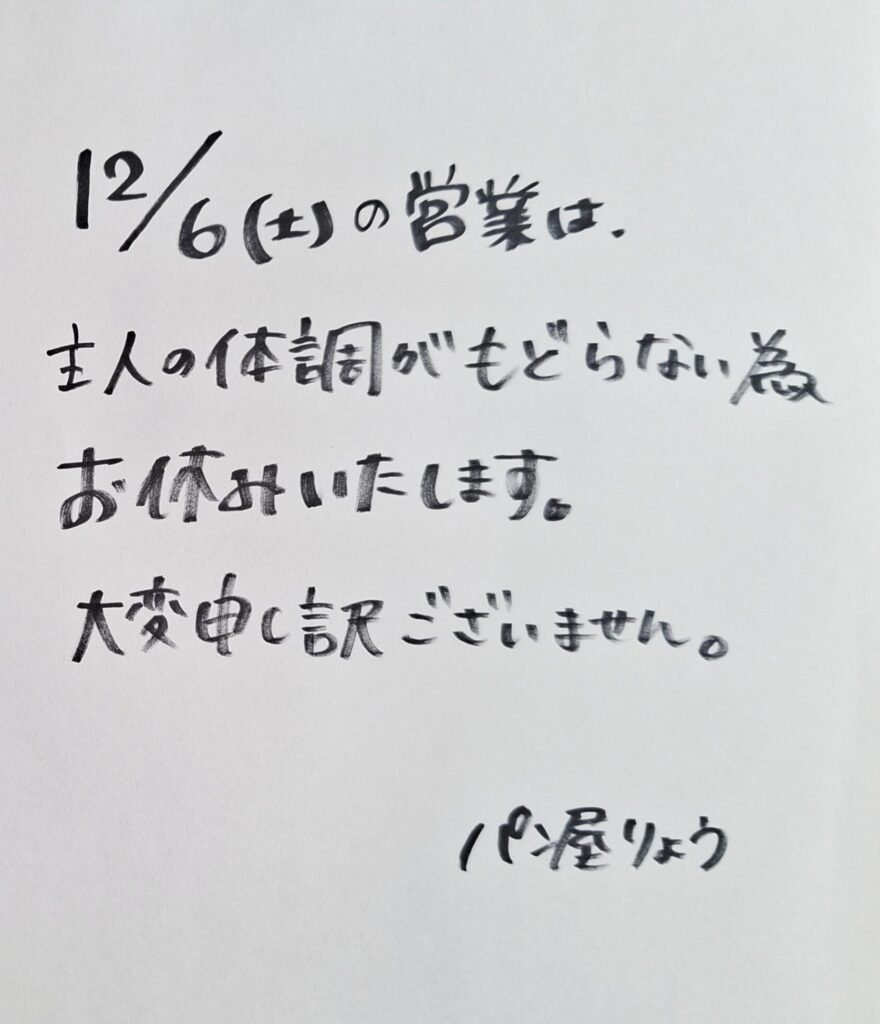 12/6(土)の営業は、
主人の体調がもどらない為
お休みいたします。
大変申し訳ございません。
パン屋りょう